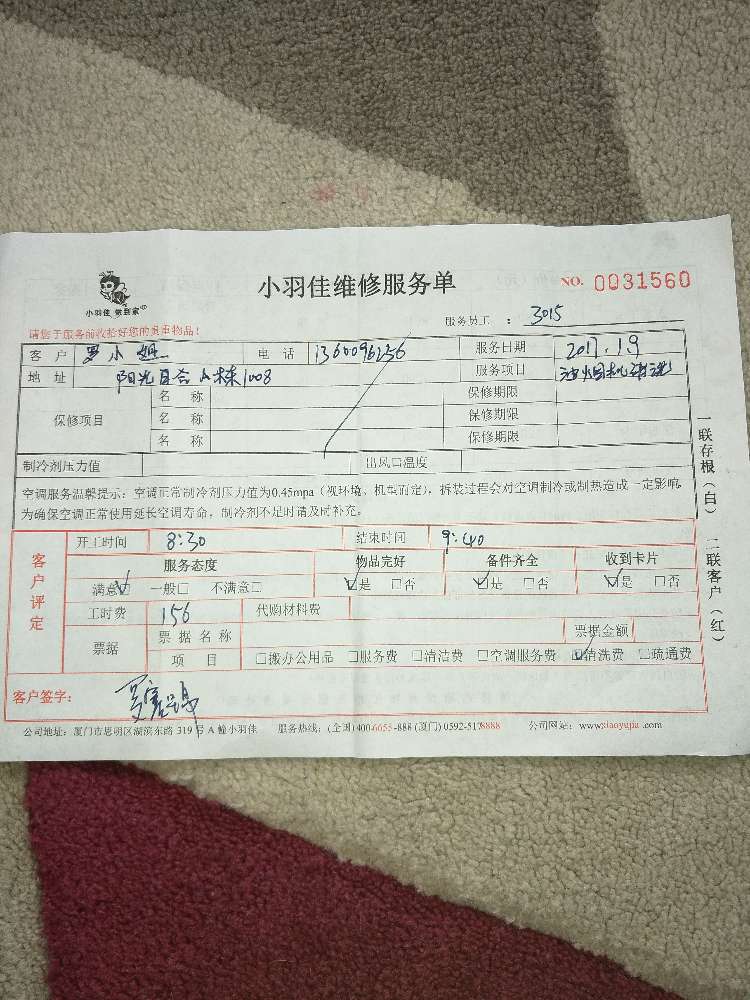 小羽佳 做到家®
小羽佳维修服务单
NO. 0031560
请您于服务前收拾好您的贵重物品！
服务员工 ： 3015
客 户 罗小姐 电 话 1360096236 服务日期 2017.1.9
地 址 阳光百合 1008 服务项目 油烟机清洗
保修项目
名 称 保修期限
名 称 保修期限
名 称 保修期限
制冷剂压力值 出风口温度
空调服务温馨提示：空调正常制冷剂压力值为0.45mpa（视环境、机型而定），拆装过程会对空调制冷或制热造成一定影响
为确保空调正常使用延长空调寿命，制冷剂不足时请及时补充。
客户评定
开工时间 8:30 结束时间 9:40
服务态度 物品完好 备件齐全 收到卡片
满意☑ 一般□ 不满意□ ☑是 □否 ☑是 □否 ☑是 □否
工时费 156 代购材料费
票据 票据名称 票据金额
项 目 □搬办公用品 □服务费 □清洁费 □空调服务费 ☑清洗费 □疏通费
客户签字：
公司地址：厦门市思明区湖滨东路 319 号 A 幢小羽佳 服务热线：(全国)400-6655-888 (厦门) 0592-5178888 公司网站：www.xiaoyujia.com
一联存根（白） 二联客户（红）